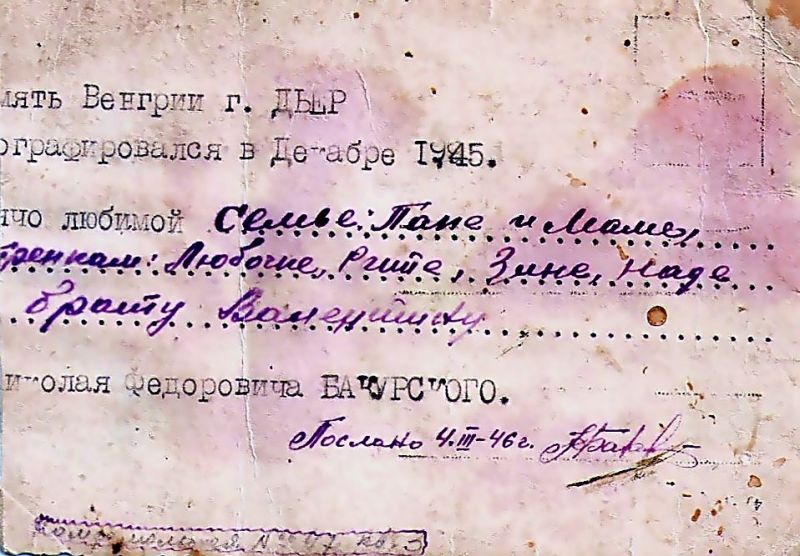 мять Венгрии г. ДЬЕР
ографировался в Декабре 1945.
ячо любимой семье: Папе и Маме,
тренкам: Любочке, Рите, Зине, Наде
брату Валентину
иколая Федоровича БАКУРСКОГО.
Послано 4.III-46г.